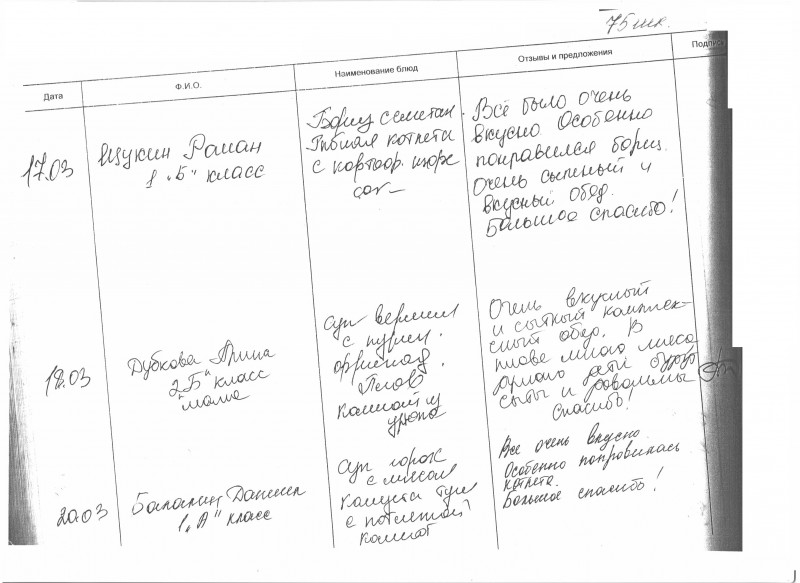 75 шк.
Дата
Ф.И.О.
Наименование блюд
Отзывы и предложения
Подпись
17.03
Щукин Роман
1 „Б" класс
Борщ сметан.
Рыбная котлета
с картоф. пюре
сок
Всё было очень
вкусно Особенно
понравился борщ.
Очень сытный и
вкусный обед.
Большое спасибо!
18.03
Дубкова Арина
2„Б" класс
"мама
суп вермиш
с курин.
фрикад
Плов
компот из
Очень вкусный
и сытный комплек-
сный обед. В
плове много мяса
дети будут
сыты и довольны
Спасибо!
20.03
Балалин Даниил
1„А" класс
суп горох
с мясом
капуста туш
с котлетой
компот
Все очень вкусно.
Особенно понравилась
котлета.
Большое спасибо!